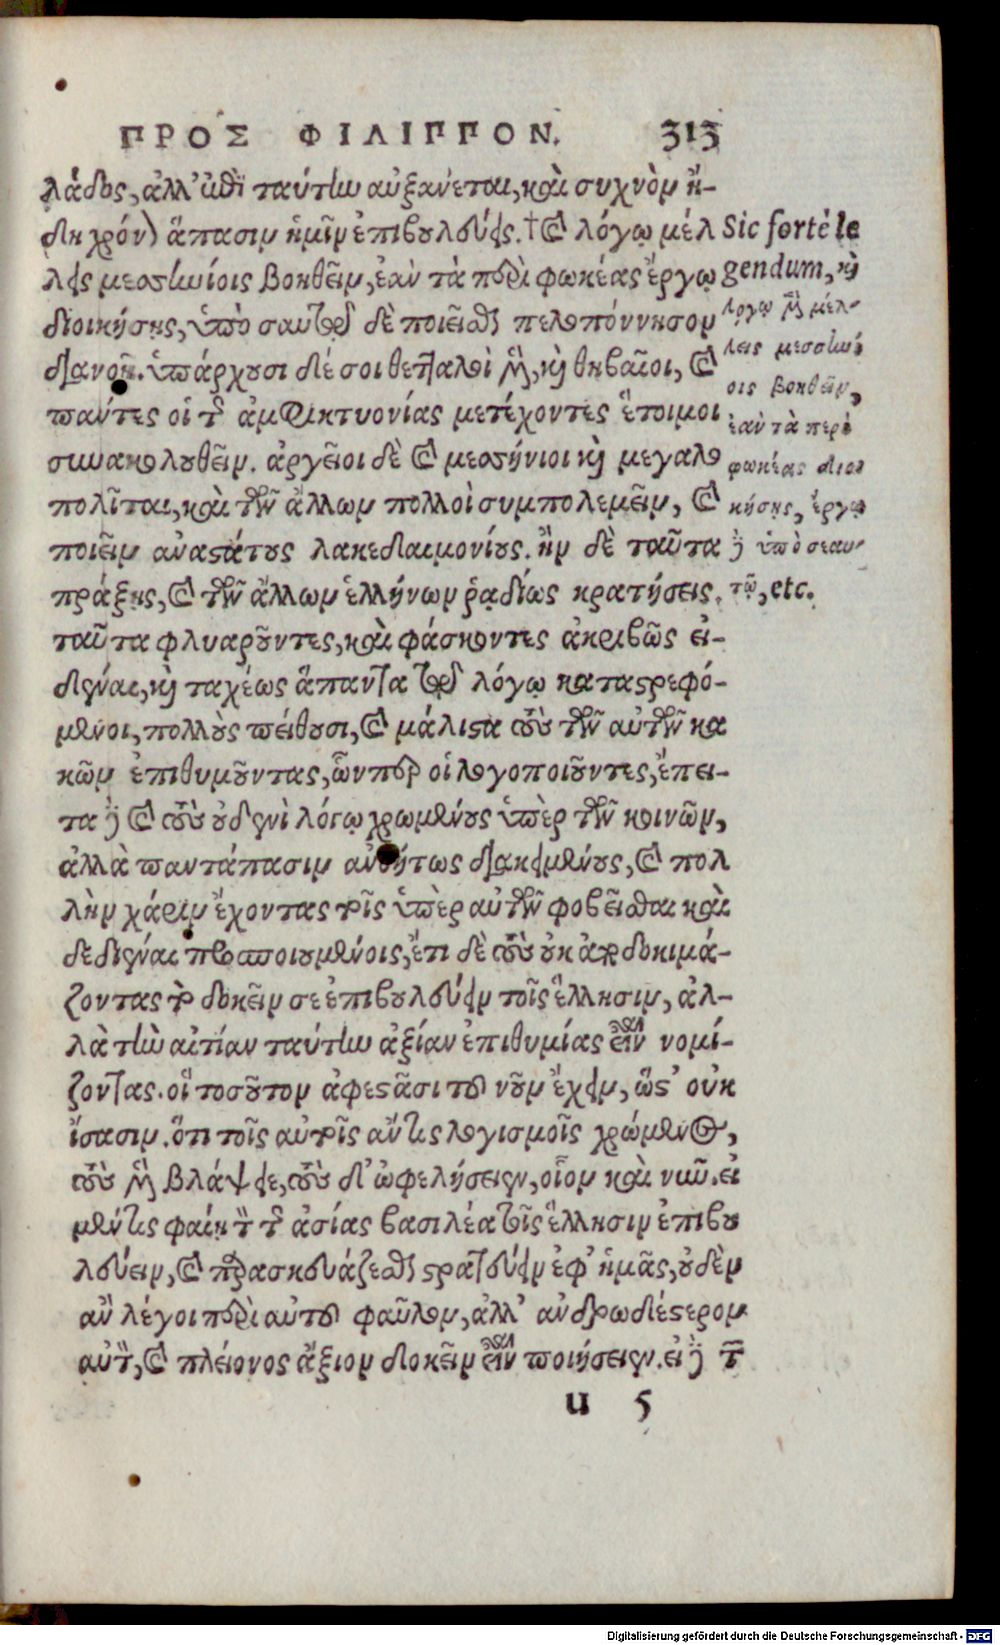 ΠΡΟΣ ΦΙΛΙΠΠΟΝ. 313
λάδος, ἀλλ' ἐπὶ ταύτην αὐξάνεται, καὶ συχνὸν ἤ-
δη χρόνον ἅπασιν ἡμῖν ἐπιβουλεύεις. † καὶ λόγῳ μέλ
λεις μεσσηνίοις βοηθεῖν, ἐὰν τὰ περὶ φωκέας ἔργῳ
διοικήσῃς, ὑπὸ σαυτῷ δὲ ποιεῖσθαι πελοπόννησον
διανοῇ. ὑπάρχουσι δέ σοι θετταλοὶ μὲν, καὶ θηβαῖοι, καὶ
πάντες οἱ τῆς ἀμφικτυονίας μετέχοντες ἕτοιμοι
συνακολουθεῖν. ἀργεῖοι δὲ καὶ μεσσήνιοι καὶ μεγαλο
πολῖται, καὶ τῶν ἄλλων πολλοὶ συμπολεμεῖν, καὶ
ποιεῖν ἀναστάτους λακεδαιμονίους. ἢν δὲ ταῦτα
πράξῃς, καὶ τῶν ἄλλων ἑλλήνων ῥᾳδίως κρατήσεις.
ταῦτα φλυαροῦντες, καὶ φάσκοντες ἀκριβῶς εἰ-
δέναι, καὶ ταχέως ἅπαντα τῷ λόγῳ καταστρεφό-
μενοι, πολλοὺς πείθουσι, καὶ μάλιστα τοὺς τῶν αὐτῶν κα
κῶν ἐπιθυμοῦντας, ὧνπερ οἱ λογοποιοῦντες, ἔπει-
τα δὲ καὶ τοὺς οὐδενὶ λόγῳ χρωμένους ὑπὲρ τῶν κοινῶν,
ἀλλὰ παντάπασιν ἀνοήτως διακειμένους, καὶ πολ
λὴν χάριν ἔχοντας τοῖς ὑπὲρ αὐτῶν φοβεῖσθαι καὶ
δεδιέναι προσποιουμένοις, ἔτι δὲ τοὺς οὐκ ἀποδοκιμά-
ζοντας τὸ δοκεῖν σε ἐπιβουλεύειν τοῖς ἕλλησιν, ἀλ-
λὰ τὴν αἰτίαν ταύτην ἀξίαν ἐπιθυμίας εἶναι νομί-
ζοντας. οἳ τοσοῦτον ἀφεστᾶσι τοῦ νοῦν ἔχειν, ὥστ' οὐκ
ἴσασιν. ὅτι τοῖς αὐτοῖς ἄν τις λογισμοῖς χρώμενος,
τοὺς μὲν βλάψειε, τοὺς δ' ὠφελήσειεν, οἷον καὶ νῦν. εἰ
μέν τις φαίη τὸν τῆς ἀσίας βασιλέα τοῖς ἕλλησιν ἐπιβου
λεύειν, καὶ παρασκευάζεσθαι στρατεύειν ἐφ' ἡμᾶς, οὐδὲν
ἂν λέγοι περὶ αὐτοῦ φαῦλον, ἀλλ' ἀνδρωδέστερον
αὐτὸν, καὶ πλείονος ἄξιον δοκεῖν εἶναι ποιήσειεν. εἰ δὲ τῶν
u 5
Sic fortè le
gendum, καὶ
λόγῳ μὲν μέλ-
λεις μεσσηνί
οις βοηθεῖν,
ἐὰν τὰ περὶ
φωκέας διοι
κήσῃς, ἔργῳ
δὲ ὑπὸ σεαυ-
τῷ, etc.
Digitalisierung gefördert durch die Deutsche Forschungsgemeinschaft - DFG